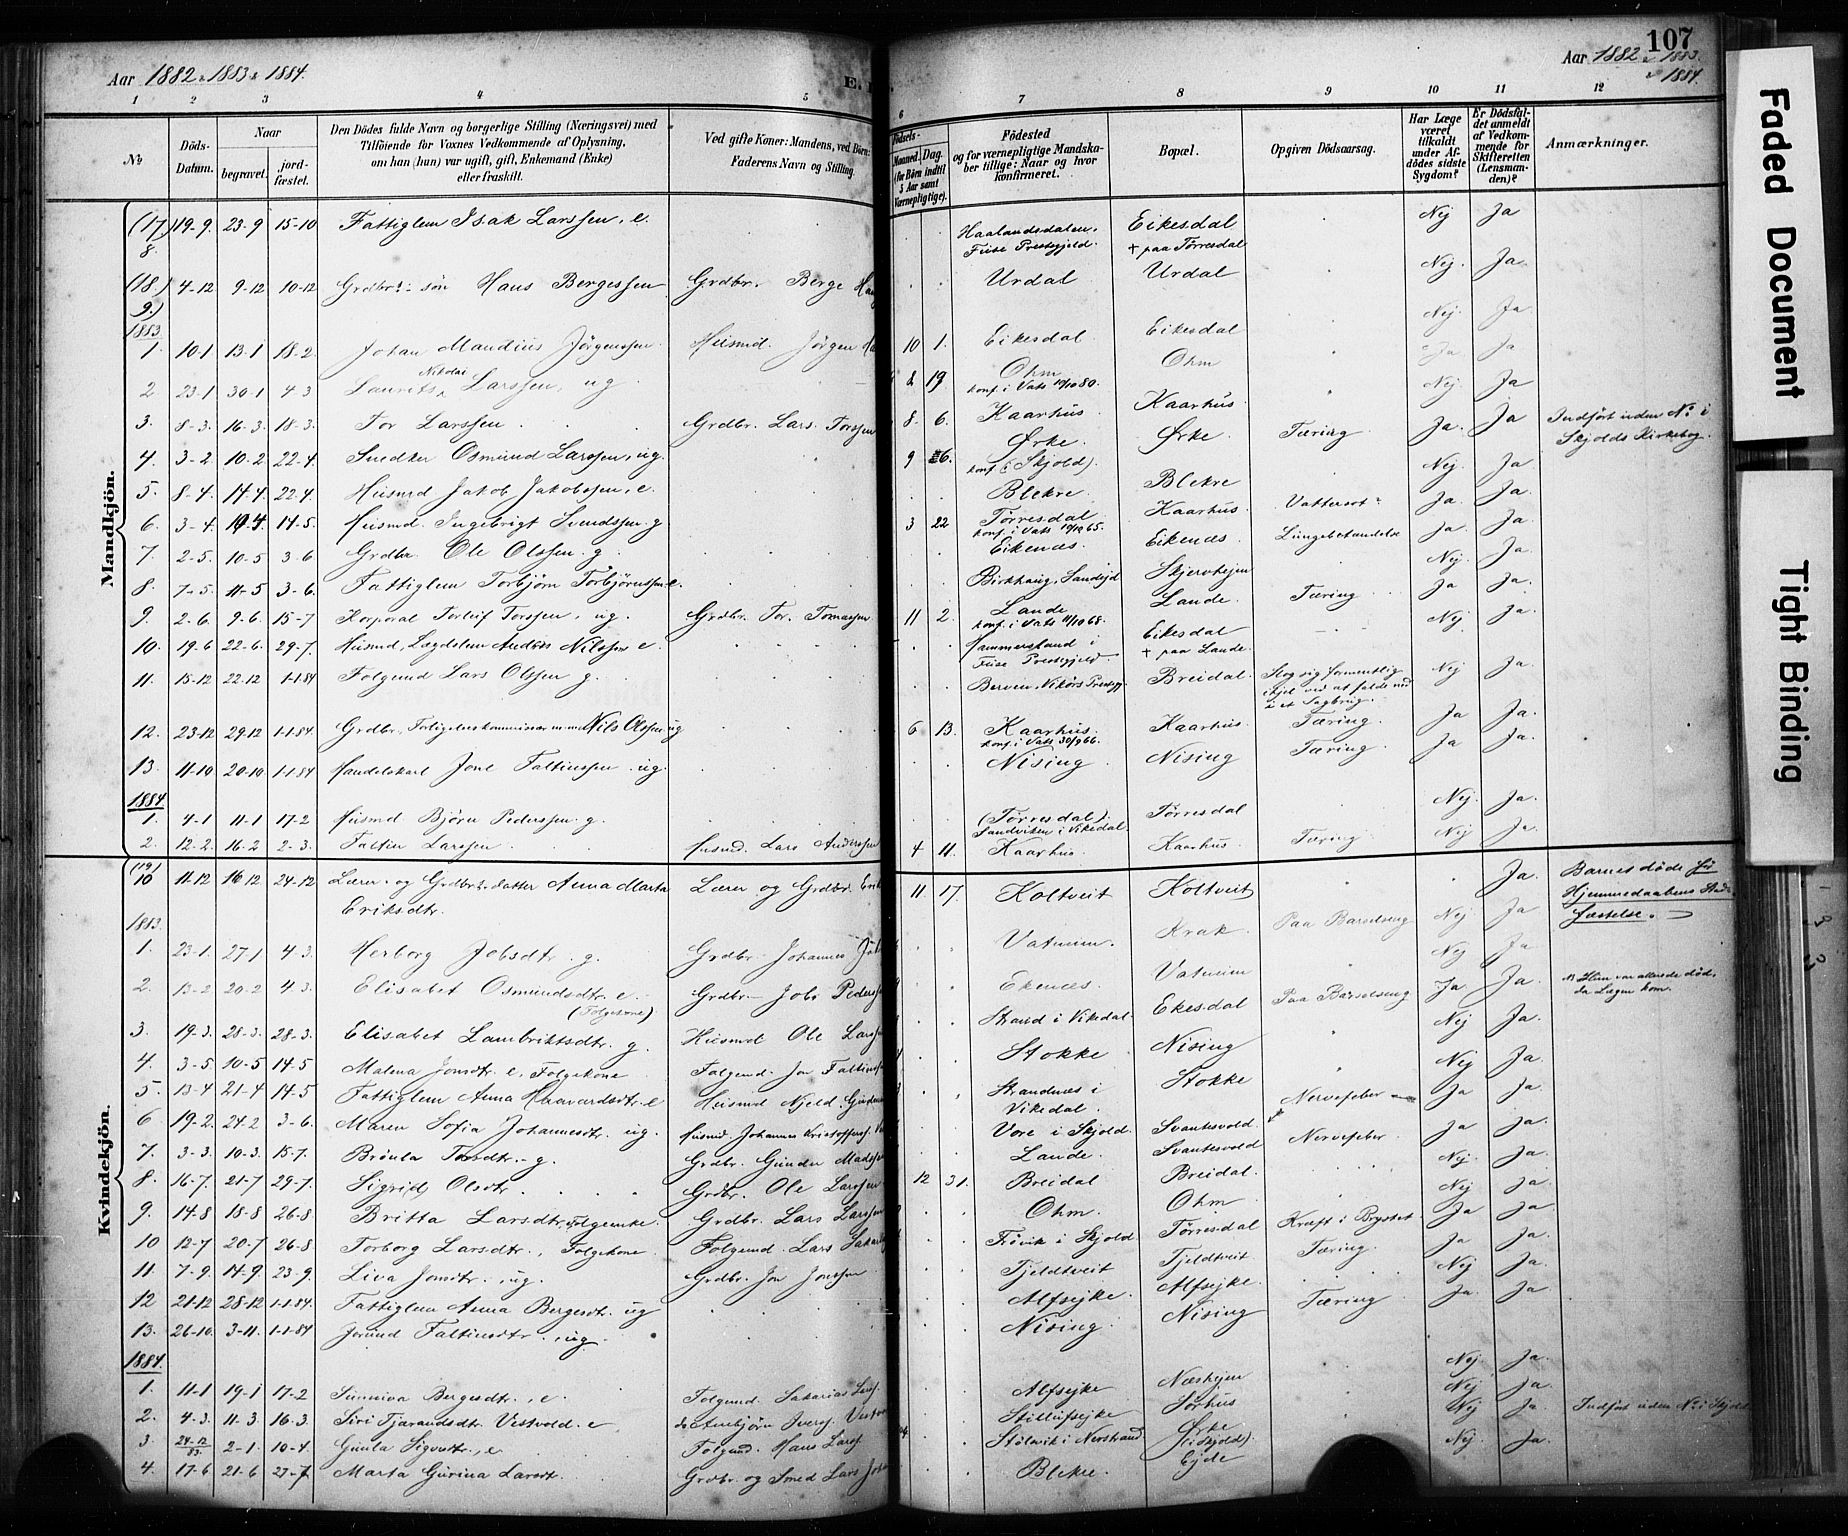 107
Aar 1882 & 1883 & 1884.
Aar 1882 & 1883. & 1884.
Faded Document
Tight Binding
1 2 3 4 5 6 7 8 9 10 11 12
No
Döds-Datum.
Naar
begravet.
jord-fæstet.
Den Dödes fulde Navn og borgerlige Stilling (Næringsvei) med
Tilföiende for Voxnes Vedkommende af Oplysning,
om han (hun) var ugift, gift, Enkemand (Enke)
eller fraskilt.
Ved gifte Koner: Mandens, ved Börn:
Faderens Navn og Stilling.
Födsels-
Maaned. Dag.
(for Börn indtil 5 Aar samt Værnepligtige).
Födested
og for værnepligtige Mandska-
ber tillige: Naar og hvor
konfirmeret.
Bopæl.
Opgiven Dödsaarsag.
Har Læge været tilkaldt under Af-dødes sidste Sygdom?
Er Dödsfal-det anmeldt af Vedkom-mende for Skifteretten (Lensman-den)?
Anmærkninger.
Mandkjön.
(17) 8. 19-9. 23-9 15-10 Fattiglem Isak Larssen, e. Haalandsdalen, Fuse Prestegjeld. Eikesdal + paa Tørresdal Nej Ja
(18.) 9.) 4-12 9-12 10-12 Grdbr.- søn Hans Bergessen Grdbr. Berge Urdal Urdal Nej. Ja.
1883.
1. 10-1 13-1 18-2. Johan Mandius Jörgenssen. Husmd. Jörgen 10 1. Eikesdal Eikesdal Nej. Ja.
2 23-1 30-1 4-3 Laurits Nikolai Larssen, ug. 2 19. Ohm konf. i Vats 10/10 80. Ohm Ja Ja
3. 8-3. 16-3. 18-3. Tor Larssen Grdbr. Lars Torssen 8 6. Kaarhus Kaarhus Nej. Ja
4. 3-2. 10-2 22-4. Snedker Osmund Larssen, ug. 9 26. Ørke. konf. i Skjold). Ørke Tæring Ja. Ja Indført uden No i Skjolds Kirkebog.
5. 8-4. 14-4. 22-4. Husmd Jakob Jakobssen, e. Blekre Blekre Nej. Ja
6. 3-4. 19-4. 14-5. Husmd. Ingebrigt Svendssen. g 3 22 Tørresdal konf. i Vats 10/10 65. Kaarhus. Vattersot Ja. Ja.
7. 2-5. 10-5 3-6 Grdbr. Ole Olssen. g. Eikenæs. Eikenæs Lungebetændelse Ja. Ja
8. 7-5. 11-5 3-6. Fattiglem Torbjørn Torbjørnssen e. Birkhaug, Sandejd Skjervhejen Nej Ja.
9. 2-6. 9-6 15-7 Korporal Torleif Torssen, ug. Grdbr. Tor. Tomassen 11 2. Lande konf. i Vats 11/10 68. Lande. Tæring Ja Ja.
10. 19-6 22-6. 29-7. Husmd, Lægdslem Anders Nilssen e. Hammersland i Fuse Prestegjeld. Eikesdal + paa Lande. Nej Ja.
11. 15-12 22-12 1-1-84 Folgemd Lars Olssen g. Berven, Vikörs Prestegj. Breidal. Slog sig formentlig ihjel ved at falde ned i et Sagbrug. Nej Ja
12. 23-12 29-12 1-1-84. Grdbr, Forligelseskommissær m.m. Nils Olssen ug 6 13. Kaarhus. konf. i Vats 30/9 66. Kaarhus. Tæring. Ja Ja.
13. 11-10 20-10 1-1-84 Handelskarl Jone Faltinssen ug. Nising Nising Tæring Ja Ja.
1884.
1. 4-1 11-1 17-2 Husmd Bjørn Pederssen. g. (Tørresdal). Sandviken i Vikedal. Tørresdal Nej. Ja.
2. 12-2. 16-2 2-3. Faltin Larssen Husmd. Lars Anderssen 4 11. Kaarhus Kaarhus. Tæring Nej Ja.
Kvindekjön.
(19) 10 11-12 16-12 24-12 Lærer- og Grdbrs. datter Anna Marta Eriksdtr. Lærer og Grdbr. Erik 11. 17. Koltveit Koltveit Ja. Barnes döde för Hjemmedaabens Stad-fæstelse.
1883.
1. 23-1. 27-1 4-3. Herborg Jobsdtr. g. Grdbr. Johannes Vatnum. Krak. Paa Barselseng Nej Ja
2. 13-2 20-2 4-3 Elisabet Osmundsdtr. e. (Folgekone) Grdbr. Job Pederssen Ekenæs. Vatnum Nej Ja
3. 19-3. 28-3. 28-3. Elisabet Lambriktsdtr. g. Husmd Ole Lars Strand i Vikedal Ekesdal Paa Barselseng Ja Ja. Hun var allerede död, da Lægen kom.
4. 3-5. 10-5 14-5 Malena Jonsdtr. e, Folgekone Folgemd. Jon Faltins Stokke Nising Nej Ja.
5. 13-4 21-4 14-5 Fattiglem Anna Haavardsdtr. e Husmd Njeld Strandnæs i Vikedal. Stokke Nej Ja.
6 19-2. 24-2 3-6. Maren Sofia Johannesdtr. ug. Husmd. Johannes Kristoffers. Vore i Skjold. Svantesvold. Nervefeber Ja Ja.
7. 3-3. 10-3. 15-7. Brönla Torsdtr. g. Grdbr. Gunder Madssen Lande. Svantesvold Nervefeber Ja Ja.
8. 16-7. 21-7 29-7. Sigrid Olsdtr. Grdbr. Ole Larssen 12 31. Breidal Breidal. Nej. Ja
9. 14-8 18-8 26-8 Britta Larsdtr, Folgeenke. Grdbr. Lars Larssen Ohm. Ohm Nej Ja.
10 12-7 20-7 26-8 Torborg Larsdtr., Folgekone Folgemd. Lars Sakar Frövik i Skjold Tørresdal Kræft i Brystet Ja Ja.
11. 7-9. 14-9. 23-9. Liva Jonsdtr., ug. Grdbr. Jon Jonssen Tjeldtveit Tjeldtveit Tæring Ja Ja.
12 21-12 28-12 1-1-84. Fattiglem Anna Bergesdtr. ug Alfsejke. Alfsejke. Nej Ja
13. 26-10. 3-11. 1-1-84 Jorund Faltinsdtr., ug. Nising Nising Tæring Ja. Ja.
1884.
1. 11-1 19-1 17-2 Sunniva Bergesdtr., e. Folgemd Sakarias Lars Alfsejke Næshejen Nej. Ja.
2. 4-3. 11-3. 16-3. Siri Tjærandsdtr. Vestvold. e Arnbjörn Ivers. Vestv Stillufsejke Sörhus Nej Ja.
3. 24-12/83. 2-1 10-4. Gunla Sigvesdtr., e. Folgemd. Hans Larsf. Stölsvik i Nerstrand Ørke (i Skjold). Nej Ja. Indfört uden No i Skjold
4. 17-6 21-6 27-7 Marta Gurina Larsdt. Grdbr. og Smed Lars Joh Blekre. Ejde Nej. Ja.